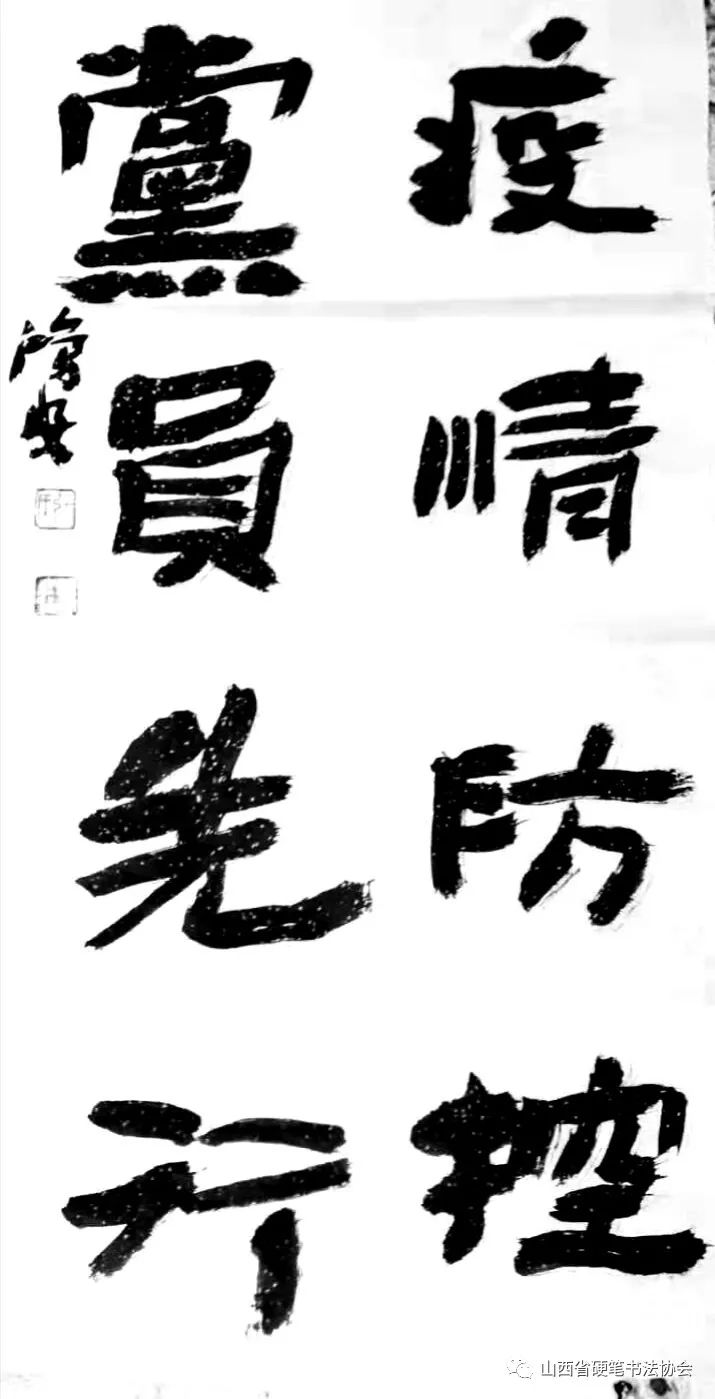 疫情防控
黨員先行
山西省硬笔书法协会